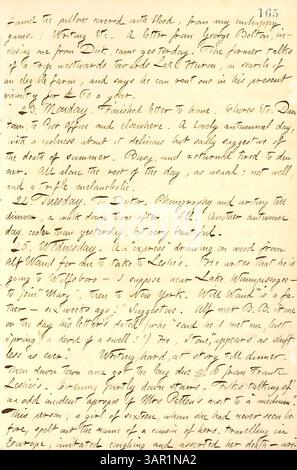 165
found the pillow covered with blood, from my unhappy
gums. Writing &c. A letter from George Bolton, in-
closing one from Dick, came yesterday. The former talks
of a trip westwards towards Lake Huron, in search of
an eligible farm, and says he can rent one in his present
vicinity for £60 a year.
23. Monday. Finished letter to home. Chores &c. Down
town to Post Office and elsewhere. A lovely autumnal day,
with a coolness about it delicious but sadly suggestive of
the death of summer. Busy, and returned tired to din-
ner. All alone the rest of the day, as usual; not well
and a trifle melancholic.
24. Tuesday. To Phonography and writing till
dinner, a walk down town after. Another autumn
day, cooler than yesterday, but very beautiful.
25. Wednesday. A "express" drawing on wood from
Alf Waud for me to take to Leslie's. He writes that he is
going to Wolfsboro - I suppose near Lake Winnipisiogee -
to join "Mary", then to New York. Will Waud is a fa-
ther - six weeks ago! Suggestive. Alf met B. B. Stone
on the day his letter's dated (who "said he'd met me, last
spring, a deed of a swell!") He, Stone, "appears as shift-
less as ever." Writing, hard, at story till dinner.
Then down town and got the long due $16 from Frank
Leslie's. Evening partly down stairs. Talks talking of
an odd incident apropos of Mrs Potter's visit to a "medium."
This person, a girl of sixteen whom she had never seen be-
fore, spelt out the name of a cousin of hers, travelling in
Europe, imitated coughing and asserted her death - wri-